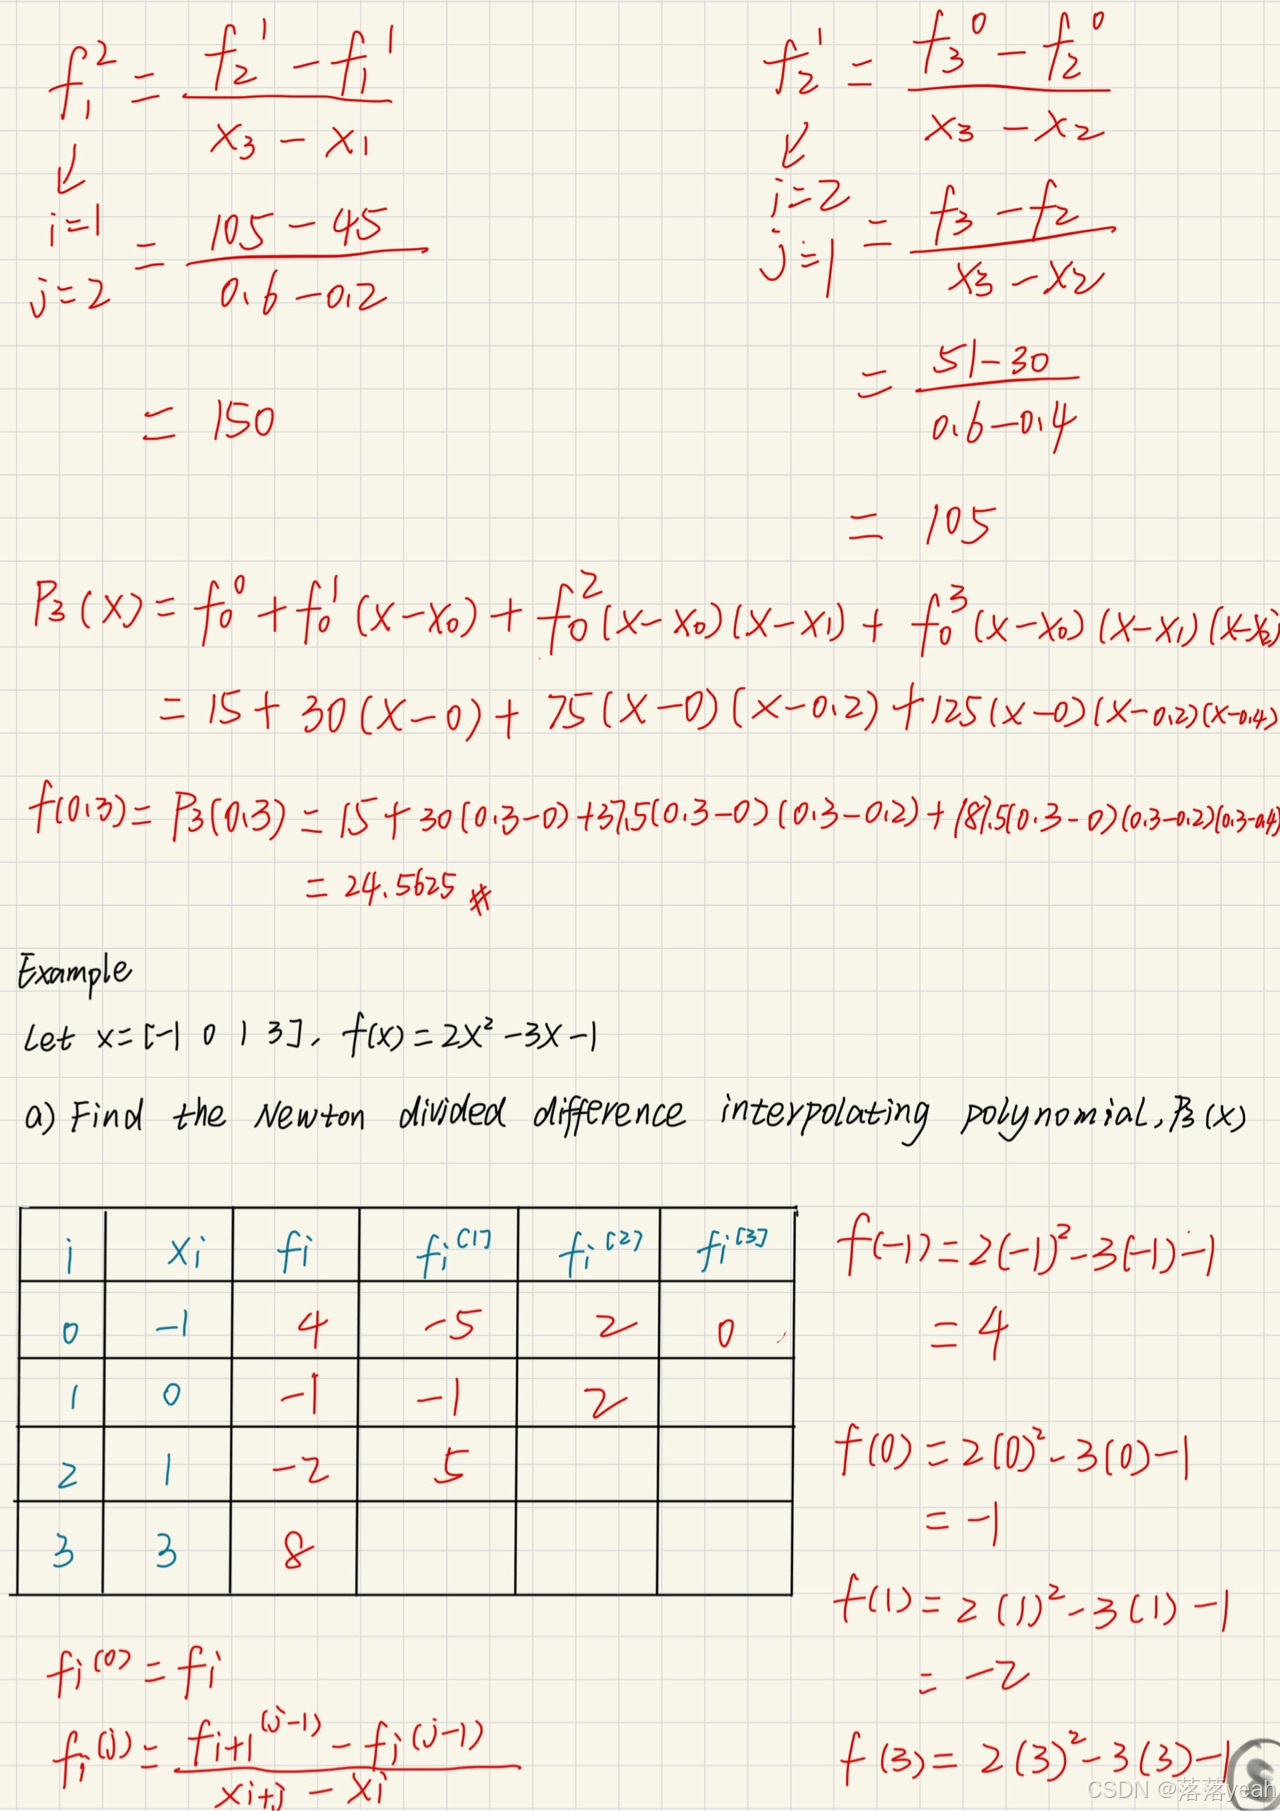 f₁² = (f₂¹ − f₁¹)/(x₃ − x₁)
↓
i=1
j=2
= (105 − 45)/(0.6 − 0.2)
= 150
f₂¹ = (f₃⁰ − f₂⁰)/(x₃ − x₂)
↓
i=2
j=1
= (f₃ − f₂)/(x₃ − x₂)
= (51 − 30)/(0.6 − 0.4)
= 105
P₃(x) = f₀⁰ + f₀¹(x−x₀) + f₀²(x−x₀)(x−x₁) + f₀³(x−x₀)(x−x₁)(x−x₂)
= 15 + 30(x−0) + 75(x−0)(x−0.2) + 125(x−0)(x−0.2)(x−0.4)
f(0.3) = P₃(0.3) = 15 + 30(0.3−0) + 37.5(0.3−0)(0.3−0.2) + 187.5(0.3−0)(0.3−0.2)(0.3−0.4)
= 24.5625 #
Example
Let x = [-1 0 1 3], f(x) = 2x² − 3x − 1
a) Find the Newton divided difference interpolating polynomial, P₃(x)
i xi fi fi[1] fi[2] fi[3]
0 -1 4 -5 2 0
1 0 -1 -1 2
2 1 -2 5
3 3 8
f(-1) = 2(-1)² − 3(-1) − 1
= 4
f(0) = 2(0)² − 3(0) − 1
= -1
f(1) = 2(1)² − 3(1) − 1
= -2
f(3) = 2(3)² − 3(3) − 1
fi(0) = fi
fi(j) = (fi+1(j-1) − fi(j-1))/(xi+j − xi)
CSDN @落落yeah
S